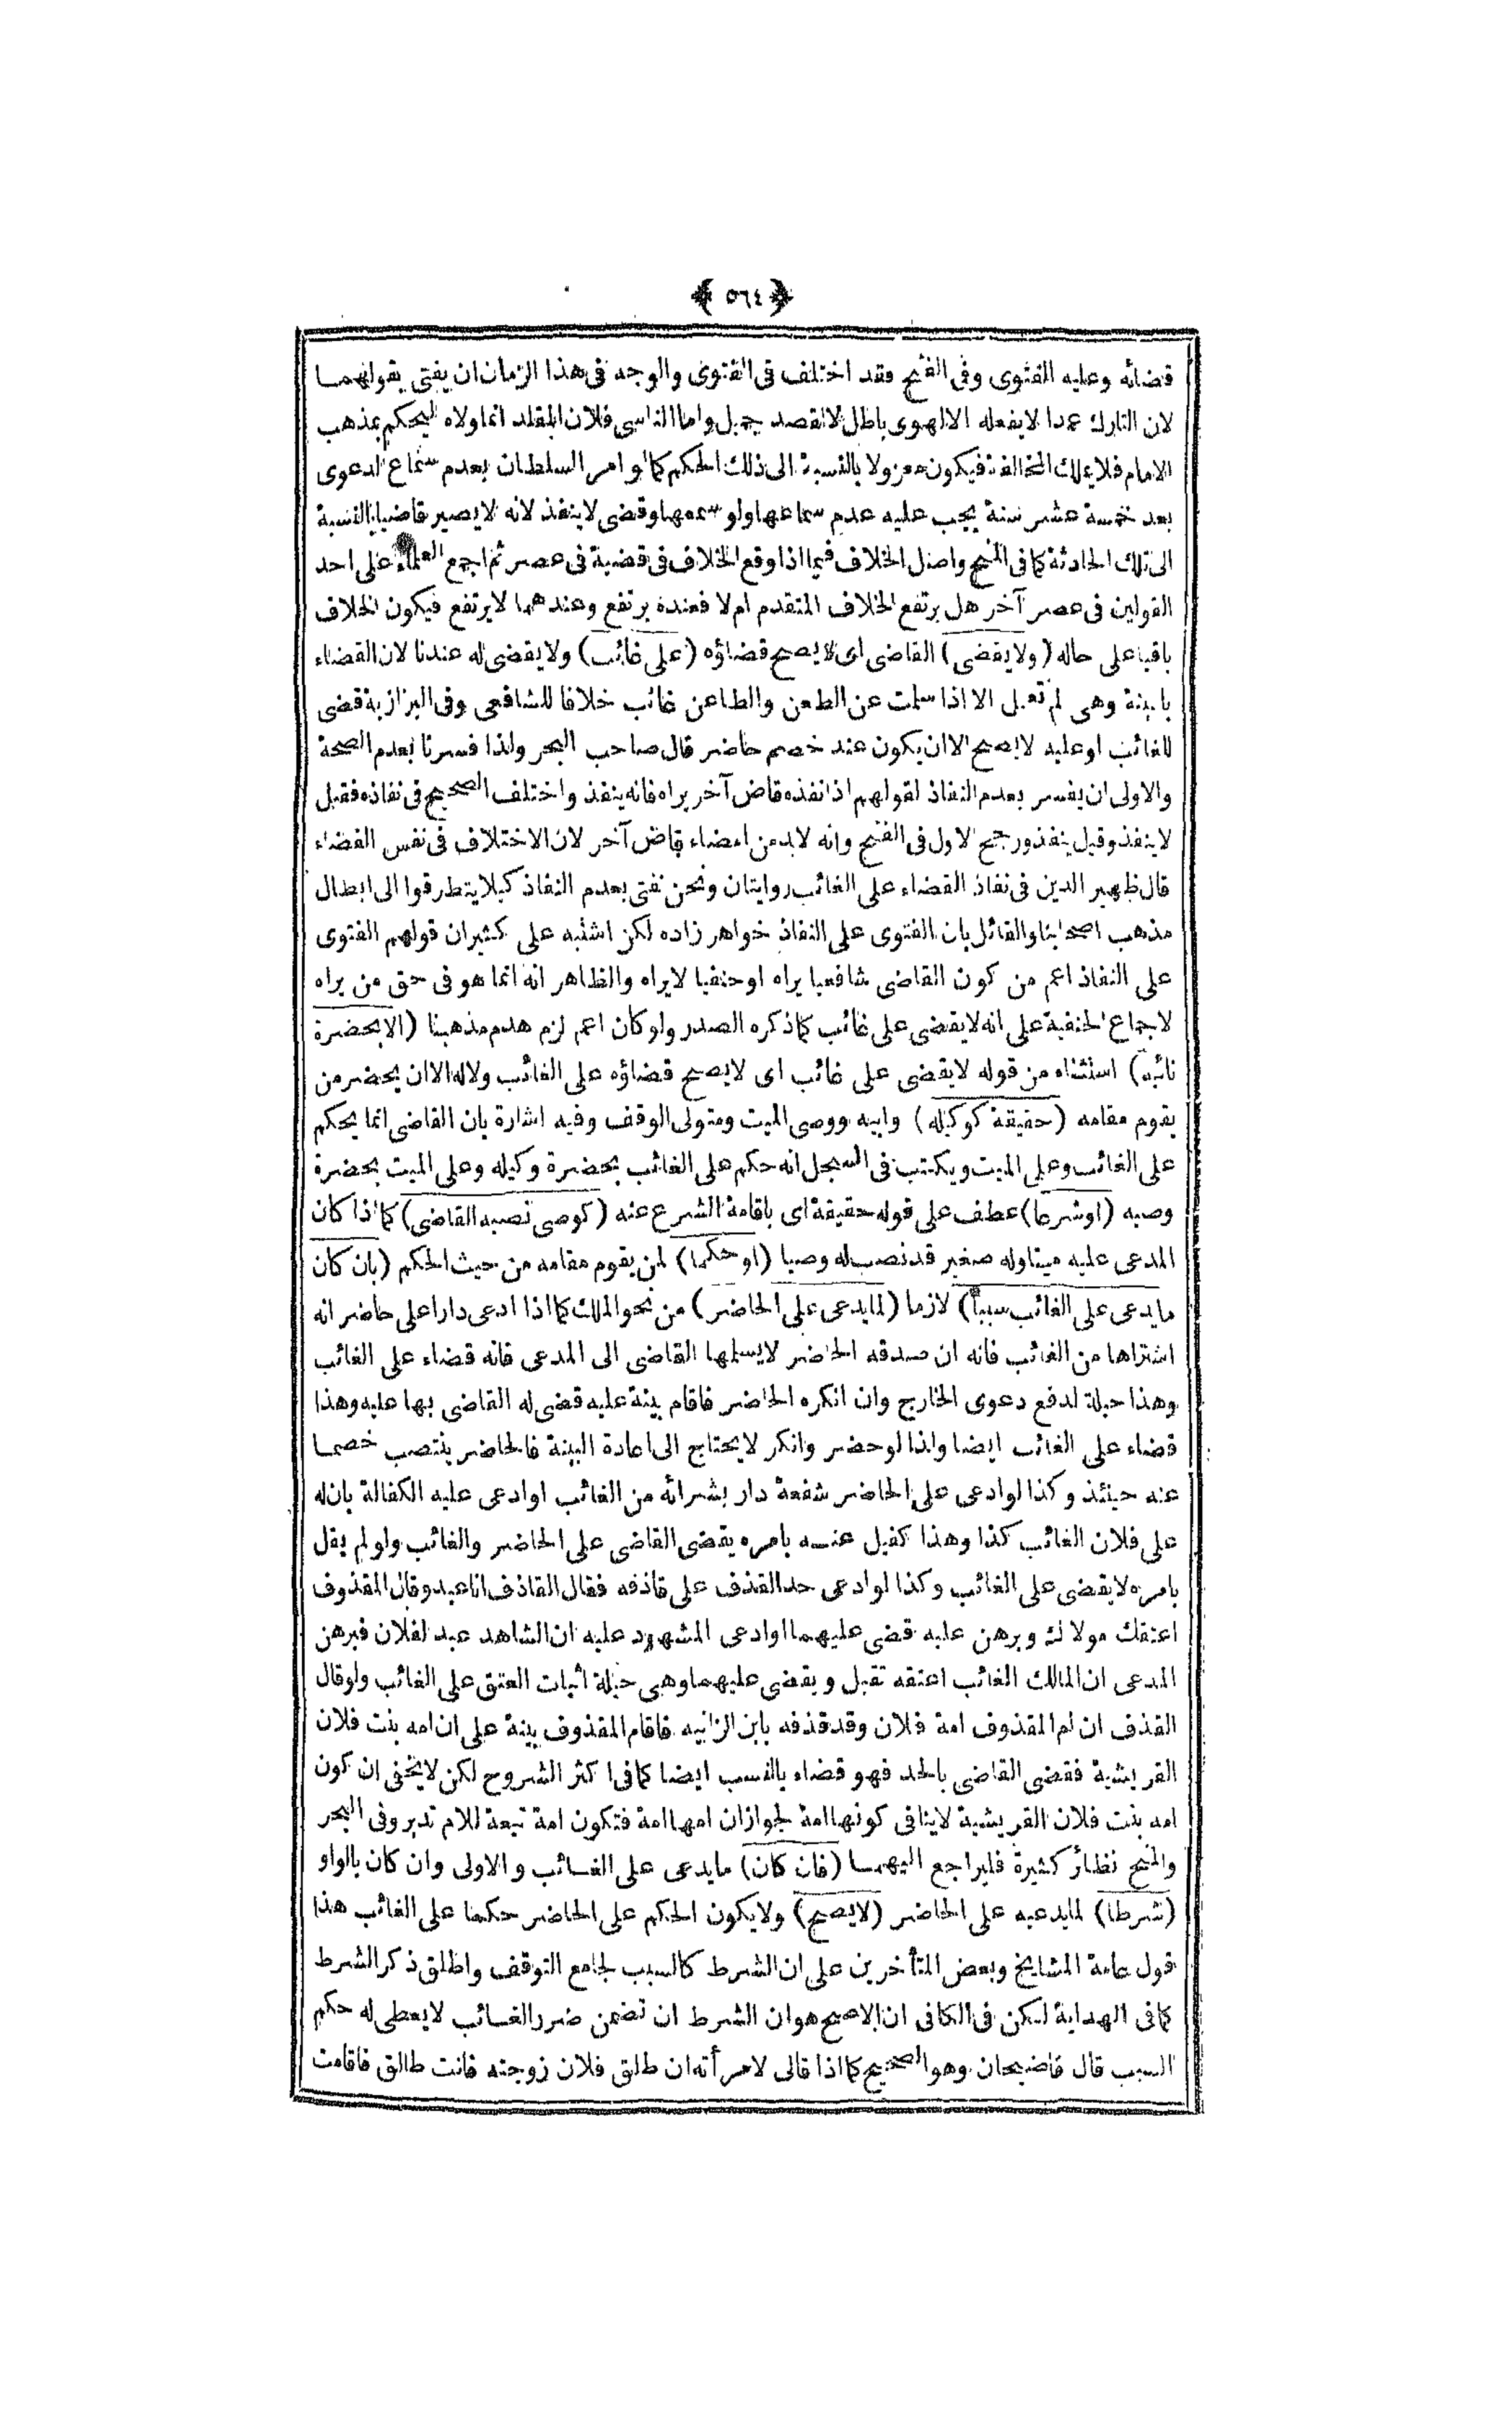 ﴿ ٥٦٤ ﴾
قضائه وعليه الفتوى وفى الفتح فقد اختلف فى الفتوى والوجه فى هذا الزمان ان يفتى بقولهما
لان التارك عمدا لايفعله الا لهوى باطل لا لقصد جميل واما الناسى فلان المقلد انما ولاه ليحكم بمذهب
الامام فلايملك المخالفة فيكون معزولا بالنسبة الى ذلك الحكم كما لو امر السلطان بعدم سماع الدعوى
بعد خمسة عشر سنة يجب عليه عدم سماعها ولو سمعها وقضى لاينفذ لانه لايصير قاضيا بالنسبة
الى تلك الحادثة كما فى المنح واصل الخلاف فيما اذا وقع الخلاف فى قضية فى عصر ثم اجمع العلماء على احد
القولين فى عصر آخر هل يرتفع الخلاف المتقدم ام لا فعنده يرتفع وعندهما لايرتفع فيكون الخلاف
باقيا على حاله (ولايقضى) القاضى اى لايصح قضاؤه (على غائب) ولايقضى له عندنا لان القضاء
بابينة وهى لم تعمل الا اذا سلمت عن الطعن والطاعن غائب خلافا للشافعى وفى البزازية قضى
للغائب اوعليه لايصح الا ان يكون عند خصم حاضر قال صاحب البحر ولذا فسرنا بعدم الصحة
والاولى ان يفسر بعدم النفاذ لقولهم اذا نفذه قاض آخر يراه فانه ينفذ واختلف الصحيح فى نفاذه فقيل
لاينفذ وقيل ينفذ ورجح الاول فى الفتح وانه لابد من امضاء قاض آخر لان الاختلاف فى نفس القضاء
قال ظهير الدين فى نفاذ القضاء على الغائب روايتان ونحن نفتى بعدم النفاذ كيلا يتطرقوا الى ابطال
مذهب اصحابنا والقائل بان الفتوى على النفاذ خواهر زاده لكن اشتبه على كثير ان قولهم الفتوى
على النفاذ اعم من كون القاضى شافعيا يراه او حنفيا لايراه والظاهر انه انما هو فى حق من يراه
لاجماع الحنفية على انه لايقضى على غائب كما ذكره الصدر ولو كان اعم لزم هدم مذهبنا (الابحضرة
نائبه) استثناء من قوله لايقضى على غائب اى لايصح قضاؤه على الغائب ولاله الا ان يحضر من
يقوم مقامه (حقيقة كوكيله) وابيه ووصى الميت ومتولى الوقف وفيه اشارة بان القاضى انما يحكم
على الغائب وعلى الميت ويكتب فى السجل انه حكم على الغائب بحضرة وكيله وعلى الميت بحضرة
وصيه (اوشرعا) عطف على قوله حقيقة اى باقامة الشرع عنه (كوصى نصبه القاضى) كما اذا كان
المدعى عليه ميتا وله صغير قد نصب له وصيا (او حكما) لمن يقوم مقامه من حيث الحكم (بان كان
مايدعى على الغائب سببا) لازما (لمايدعى على الحاضر) من نحو الملك كما اذا ادعى دارا على حاضر انه
اشتراها من الغائب فانه ان صدقه الحاضر لايسلمها القاضى الى المدعى فانه قضاء على الغائب
وهذا حيلة لدفع دعوى الخارج وان انكره الحاضر فاقام بينة عليه قضى له القاضى بها عليه وهذا
قضاء على الغائب ايضا ولذا لو حضر وانكر لايحتاج الى اعادة البينة فالحاضر ينتصب خصما
عنه حينئذ وكذا لو ادعى على الحاضر شفعة دار بشرائه من الغائب او ادعى عليه الكفالة بان له
على فلان الغائب كذا وهذا كفيل عنه بامره يقضى القاضى على الحاضر والغائب ولو لم يقل
بامره لايقضى على الغائب وكذا لو ادعى حد القذف على قاذفه فقال القاذف انا عبد وقال المقذوف
اعتقك مولاك وبرهن عليه قضى عليهما او ادعى المشهود عليه ان الشاهد عبد لفلان فبرهن
المدعى ان المالك الغائب اعتقه تقبل ويقضى عليهما وهى حيلة اثبات العتق على الغائب ولو قال
القذف ان ام المقذوف امة فلان وقد قذفه بابن الزانيه فاقام المقذوف بينة على ان امه بنت فلان
القريشية فقضى القاضى بالحد فهو قضاء بالنسب ايضا كما فى اكثر الشروح لكن لايخفى ان كون
امه بنت فلان القريشية لاينافى كونها امة لجواز ان امها امة فتكون امة تبعة للام تدبر وفى البحر
والمنح نظائر كثيرة فليراجع اليهما (فان كان) مايدعى على الغائب والاولى وان كان بالواو
(شرطا) لمايدعيه على الحاضر (لايصح) ولايكون الحكم على الحاضر حكما على الغائب هذا
قول عامة المشايخ وبعض المتأخرين على ان الشرط كالسبب لجامع التوقف واطلق ذكر الشرط
كما فى الهداية لكن فى الكافى ان الاصح هو ان الشرط ان تضمن ضرر الغائب لايعطى له حكم
السبب قال قاضيخان وهو الصحيح كما اذا قال لامرأته ان طلق فلان زوجته فانت طالق فاقامت